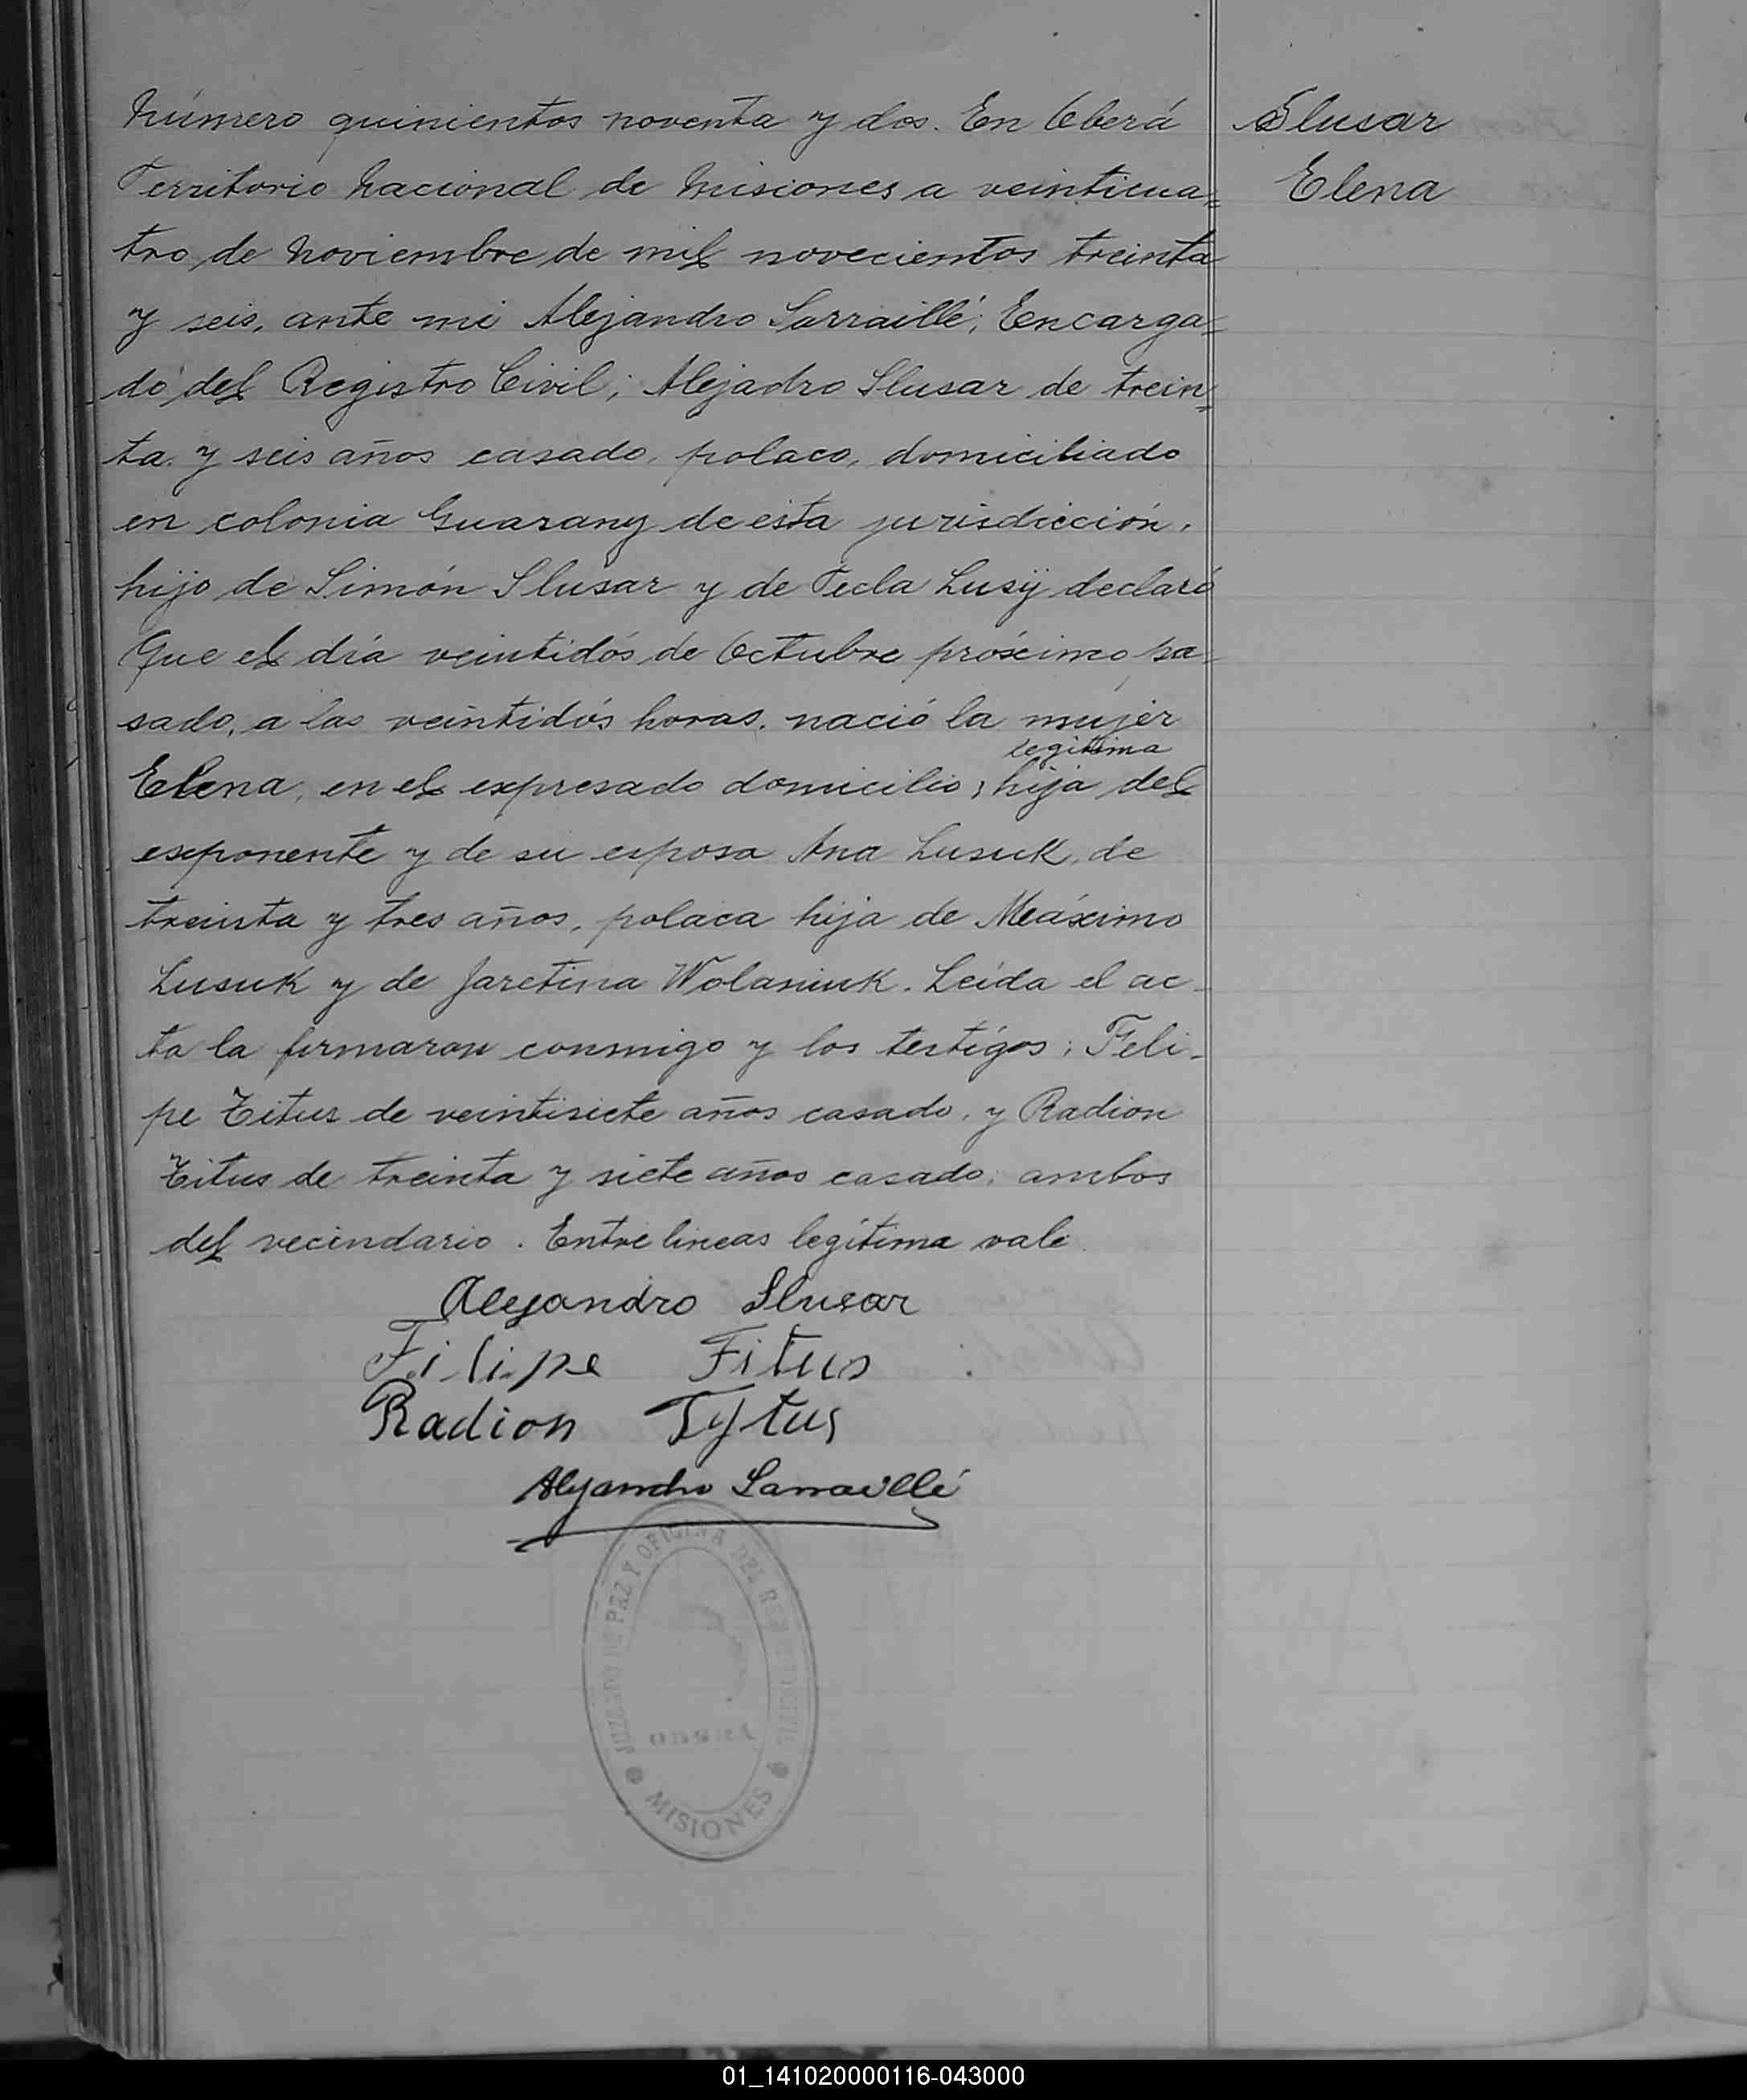 Número quinientos noventa y dos. En Oberá
Territorio Nacional de Misiones a veinticua=
tro de Noviembre de mil novecientos treinta
y seis, ante mi Alejandro Sarraillé, Encarga=
do del Registro Civil; Alejadro Slusar de trein=
ta y seis años casado, polaco, domiciliado
en colonia Guarany de esta jurisdicción,
hijo de Simón Slusar y de Tecla Lusij declaró
Que el día veintidós de Octubre próximo pa-
sado, a las veintidós horas, nació la mujer
legitima
Elena, en el expresado domicilio, hija del
exponente y de su esposa Ana Lusuk, de
treinta y tres años, polaca hija de Máximo
Lusuk y de Jaretina Wolaniuk. Leída el ac-
ta la firmaron conmigo y los testigos; Feli-
pe Titus de veintisiete años casado, y Radion
Titus de treinta y siete años casado; ambos
del vecindario. Entre lineas legítima vale.
Alejandro Slusar
Filipe Titus
Radion Tytus
Alejandro Sarraillé
JUZGADO DE PAZ Y OFICINA DEL REG. CIVIL
MISIONES
Slusar
Elena
01_141020000116-043000